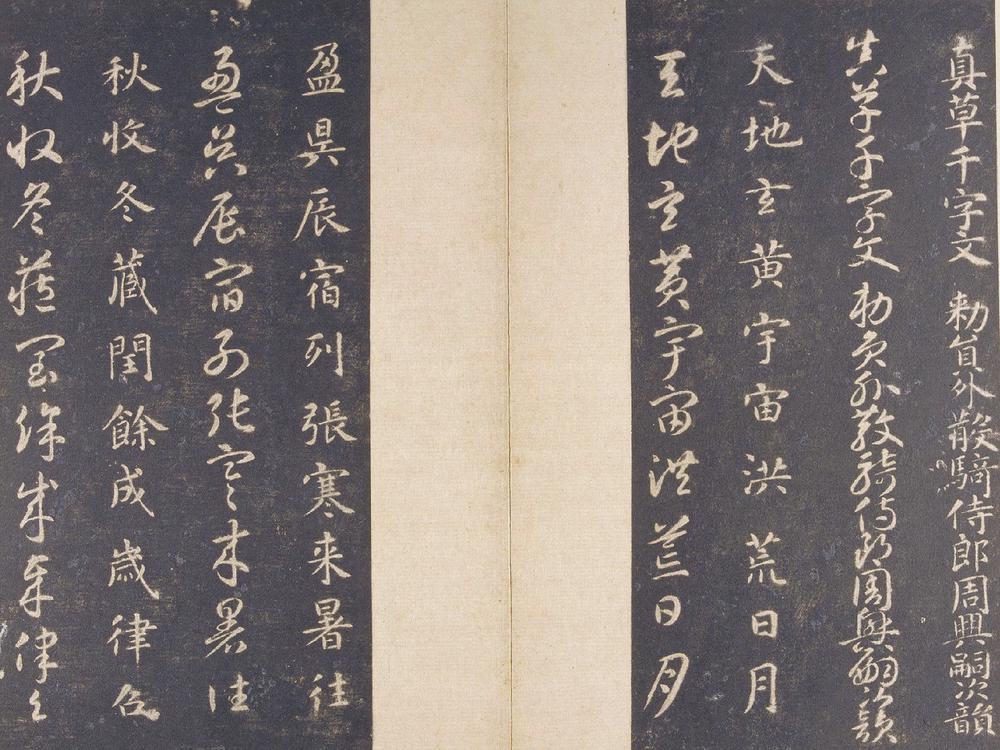 真草千字文 勅員外散騎侍郎周興嗣次韻
真草千字文勅員外散騎侍郎周興嗣次韻
天地玄黄宇宙洪荒日月
天地玄黄宇宙洪荒日月
盈昃辰宿列張寒来暑往
盈昃辰宿列張寒来暑往
秋收冬藏閏餘成歳律召
秋收冬藏閏餘成歳律召